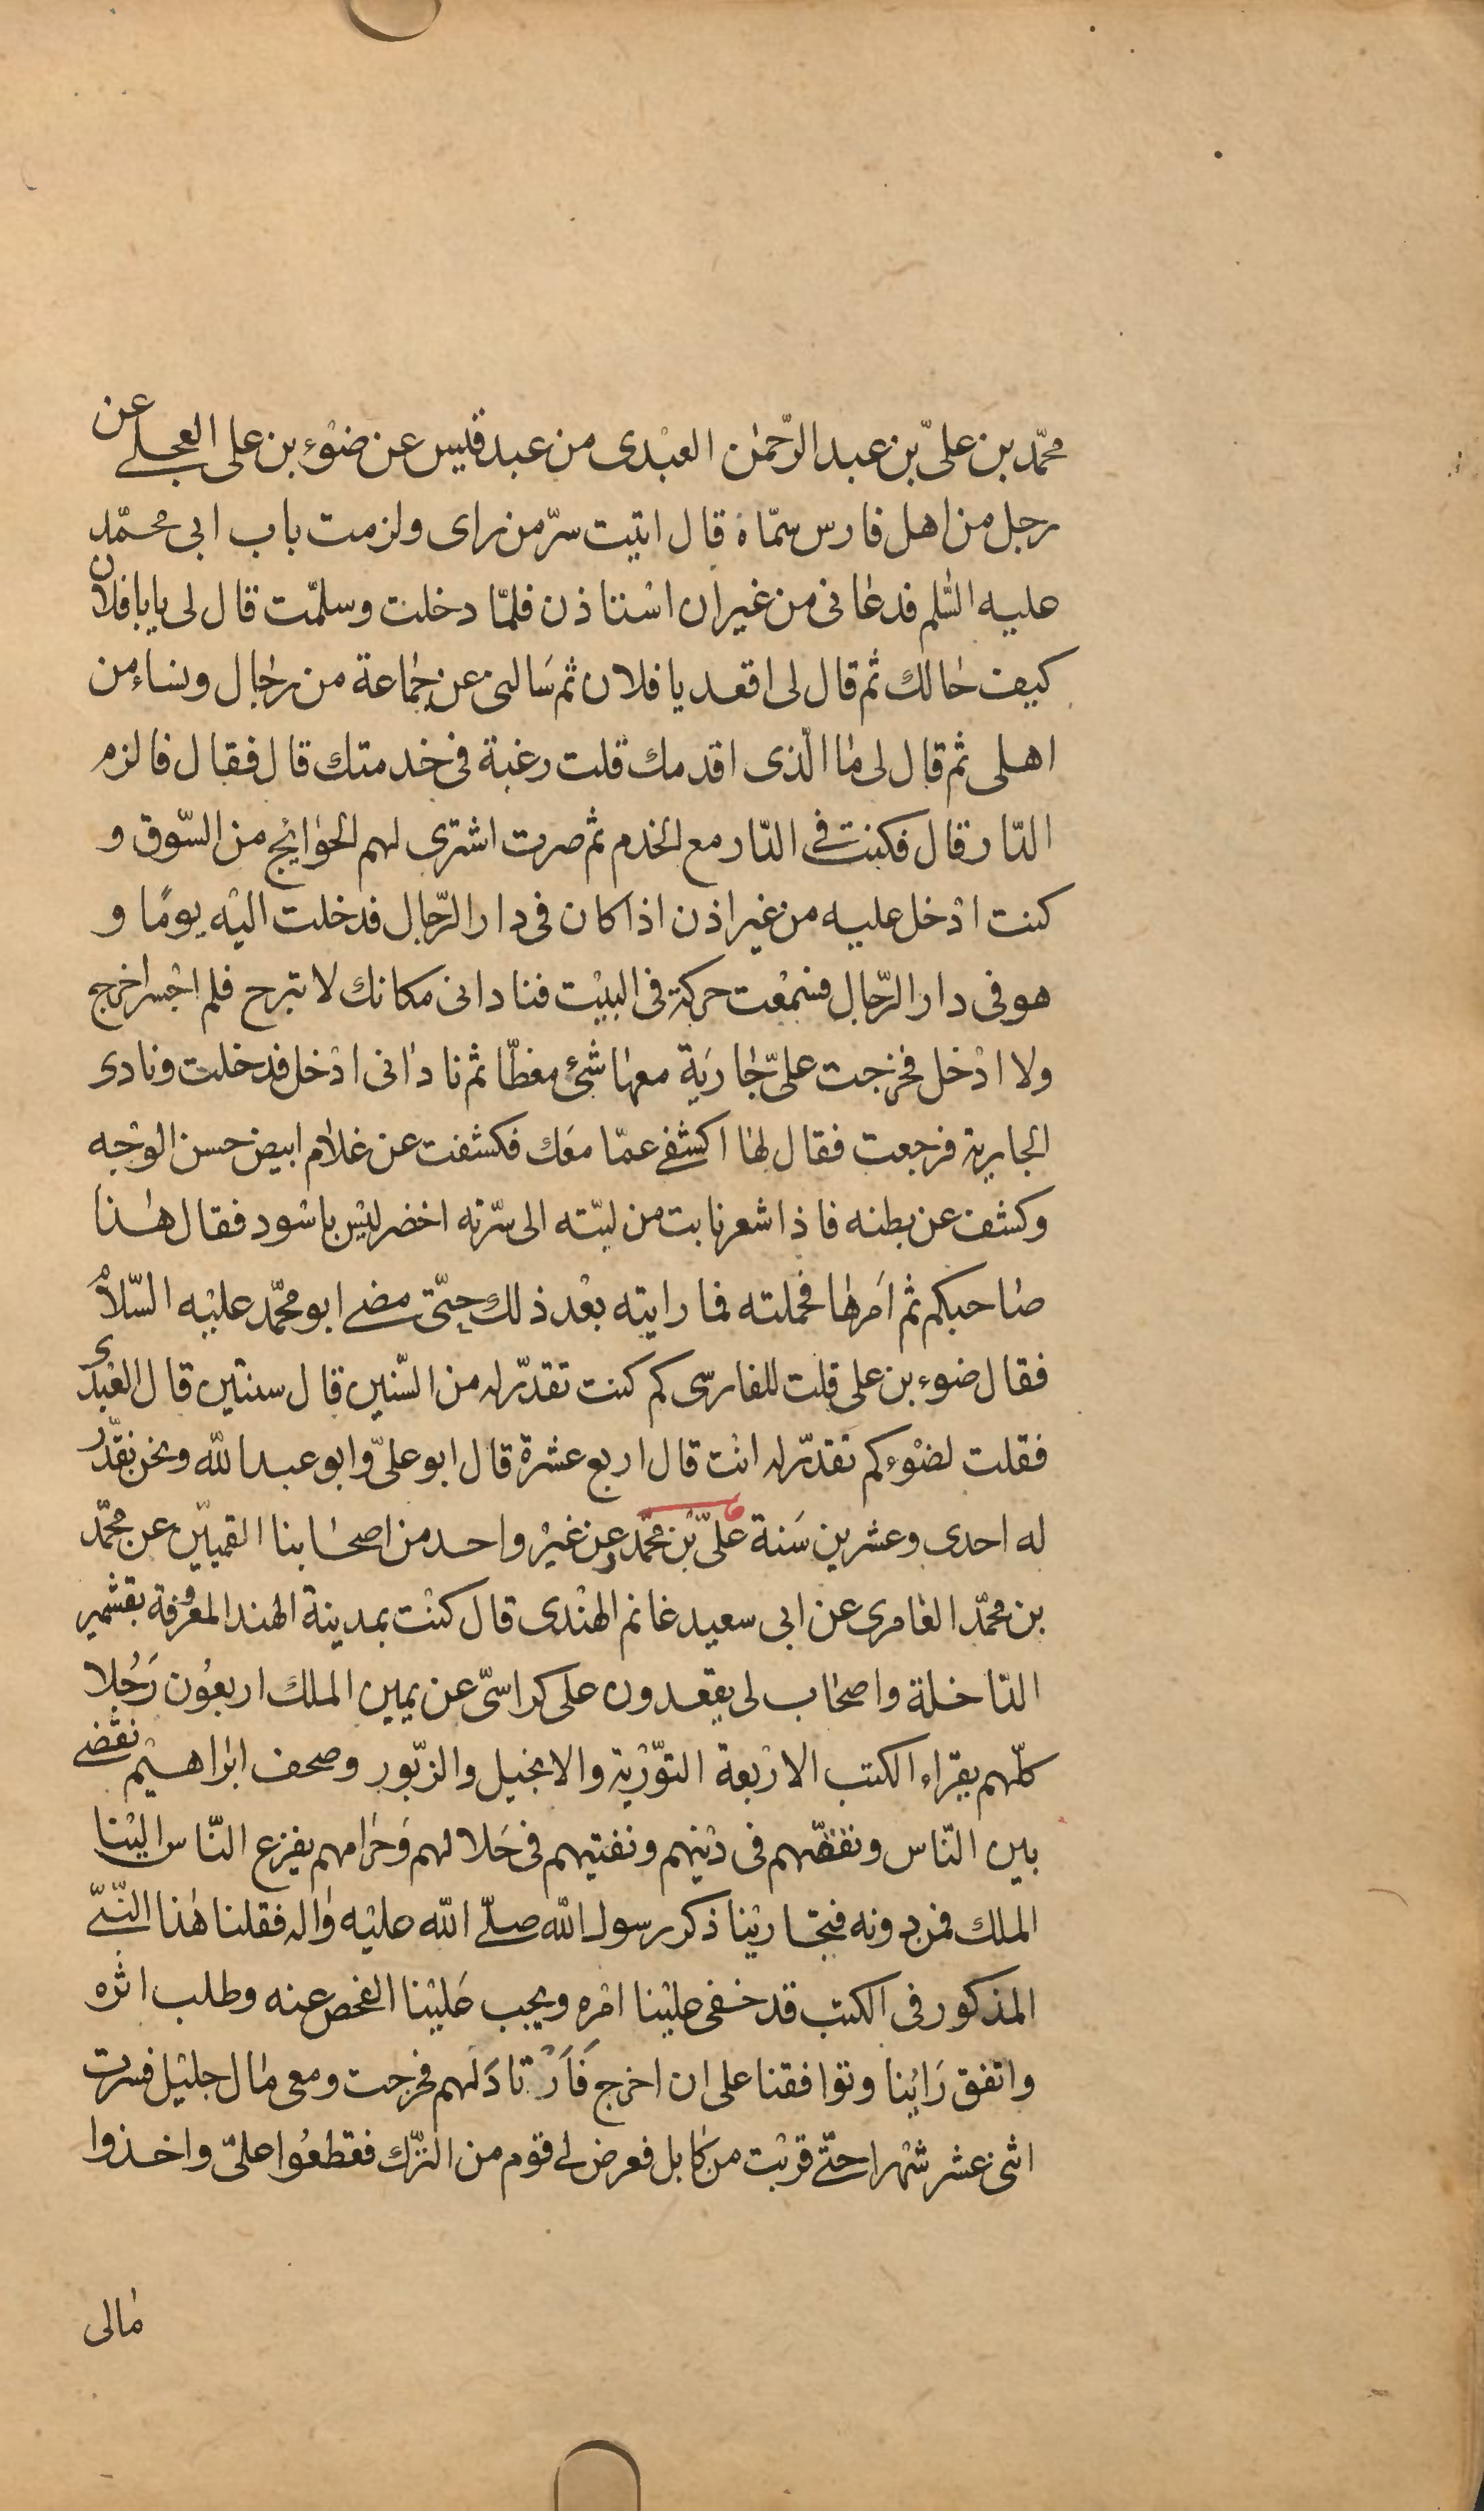 محمّد بن علىّ بن عبد الرّحمٰن العبْدى من عبد قيس عن ضوْء بن على العجلى عن
رجل من اهل فارس سمّاه قال اتيت سرّ من راى ولزمت باب ابى محمّد
عليه السّلم فدعانى من غير ان اسْتاذن فلمّا دخلت وسلمّت قال لى يابا فلان
كيف حالك ثم قال لى اقعد يا فلان ثم سَالنى عن جماعة من رجال ونساء من
اهلى ثم قال لى ما الّذى اقدمك قلت رغبة فى خدمتك قال فقال فالزم
الدّار قال فكنت فى الدّار مع الخدم ثم صرت اشترى لهم الحوايج من السّوق و
كنت ادْخل عليه من غير اذن اذا كان فى دار الرّجال فدخلت اليْه يومًا و
هو فى دار الرّجال فسمعْت حركة فى البيْت فنادانى مكانك لا تبرح فلم اجْسر اخرج
ولا ادْخل فخرجت علىّ جاريَة معها شئ مغطّا ثم نادانى ادْخل فدخلت ونادى
الجارية فرجعت فقال لها اكشفى عمّا معَك فكشفت عن غلام ابيض حسن الوجْه
وكشف عن بطنه فاذا شعر نابت من لبّته الى سّرته اخضر ليْس باسْود فقال هٰذا
صاحبكم ثم اَمرها فحملته فما رايته بعْد ذلك حتّى مضى ابو محمّد عليْه السّلامُ
فقال ضوء بن على قلت للفارسى كم كنت تقدّر له من السّنين قال سنتين قال العبْدى
فقلت لضوْء كم تقدّر له انْت قال اربع عشرة قال ابو علىّ وابو عبد الله ونحن نقدّر
له احدى وعشرين سَنة علىّ بْن محمّد وعن غيْر واحد من اصحابنا القميّين عن محمّد
بن محمّد العامرى عن ابى سعيد غانم الهنْدى قال كنْت بمدينة الهند المعروفة بقشمير
الدّاخلة واصحاب لى يقعدون على كراسىّ عن يمين الملك اربعُون رَجُلا
كلّهم يقراء الكتب الارْبعة التوّرْية والانجيل والزّبور وصحف ابراهيْم نقضى
بين النّاس ونفقّههم فى ديْنهم ونفتيهم فى حَلالهم وَحرامهم يفزع النّاس اليْنا
الملك فمن دونه فتجاريْنا ذكر رسول الله صلّى الله عليْه واله فقلنا هٰذا النّبىّ
المذكور فى الكتب قد خفى عليْنا امْره ويجب عَليْنا الفحص عنه وطلب اثره
واتفق رَايْنا وتوافقنا على ان اخرج فَاَرْتادَ لَهم فخرجت ومعى مال جليْل فسرت
اثنى عشر شهْرا حتّى قربْت من كابل فعرض لى قوم من التّرك فقطعُوا علىّ واخذوا
مالى